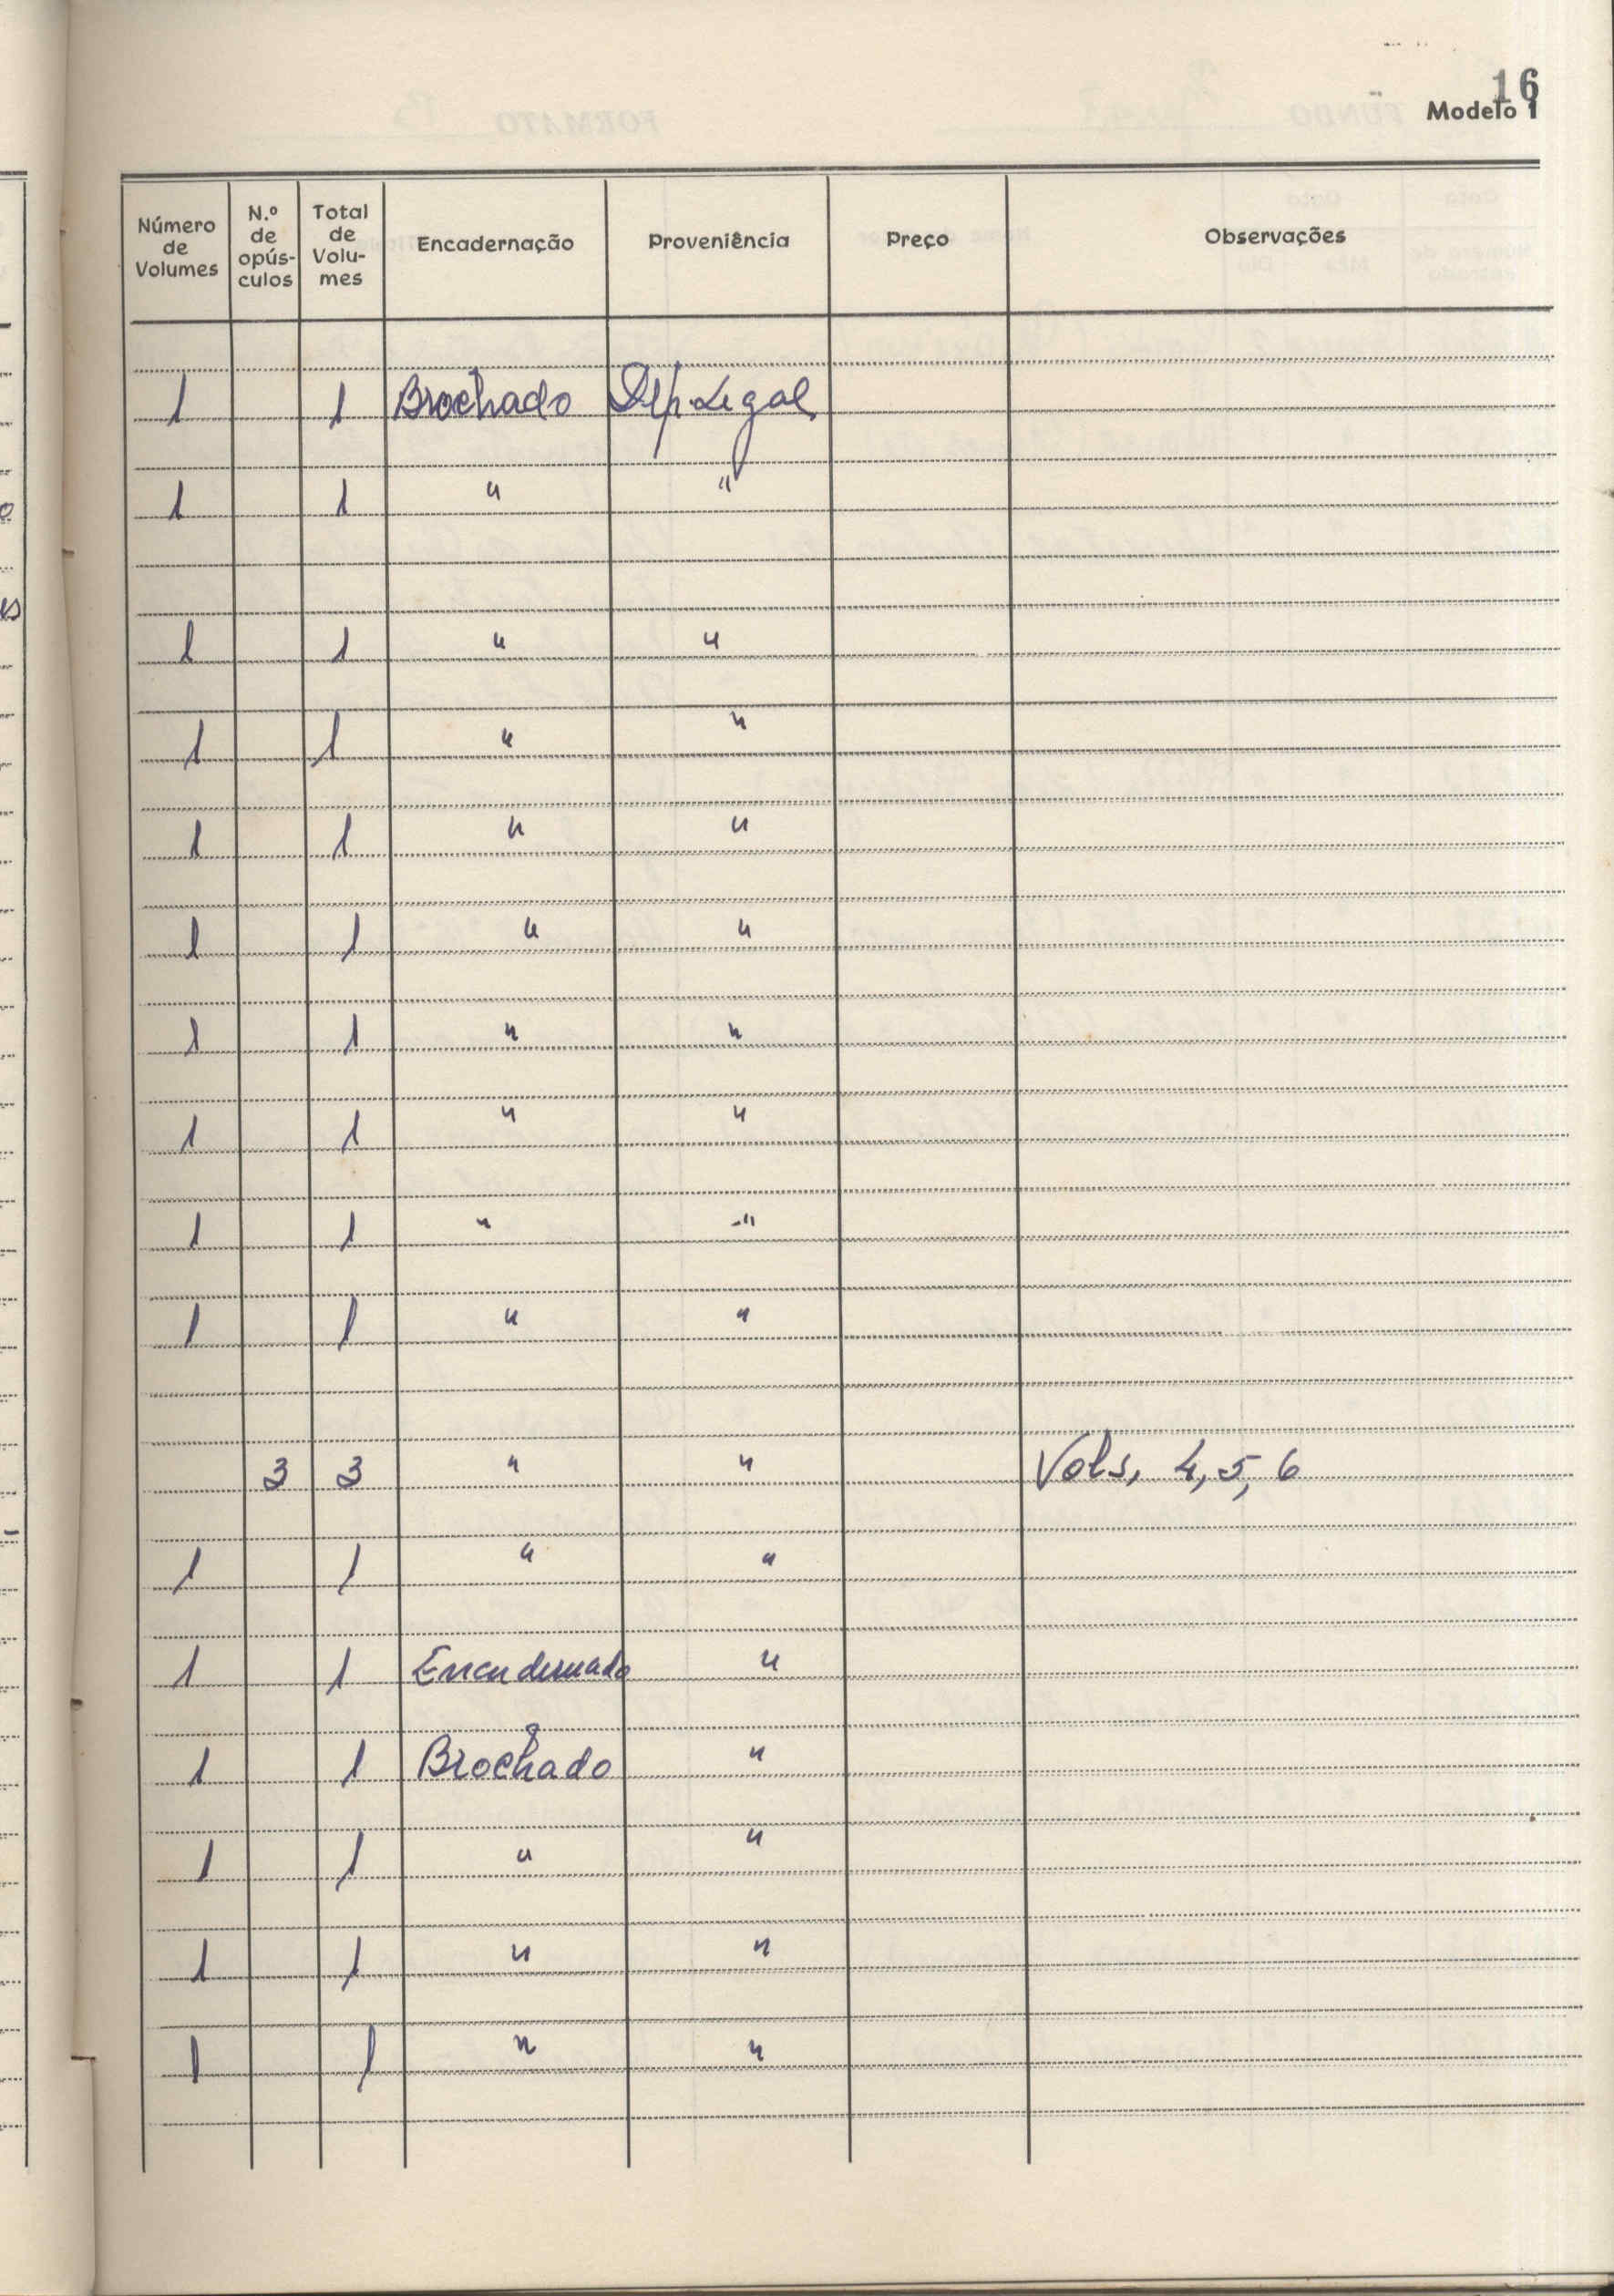 16
Modelo 1
Número de Volumes | N.º de opús-culos | Total de Volu-mes | Encadernação | Proveniência | Preço | Observações
1 | | 1 | Brochado | Dep. Legal
1 | | 1 | " | "
1 | | 1 | " | "
1 | | 1 | " | "
1 | | 1 | " | "
1 | | 1 | " | "
1 | | 1 | " | "
1 | | 1 | " | "
1 | | 1 | " | "
1 | | 1 | " | "
| 3 | 3 | " | " | | Vols, 4, 5, 6
1 | | 1 | " | "
1 | | 1 | Encadernado | "
1 | | 1 | Brochado | "
1 | | 1 | " | "
1 | | 1 | " | "
1 | | 1 | " | "